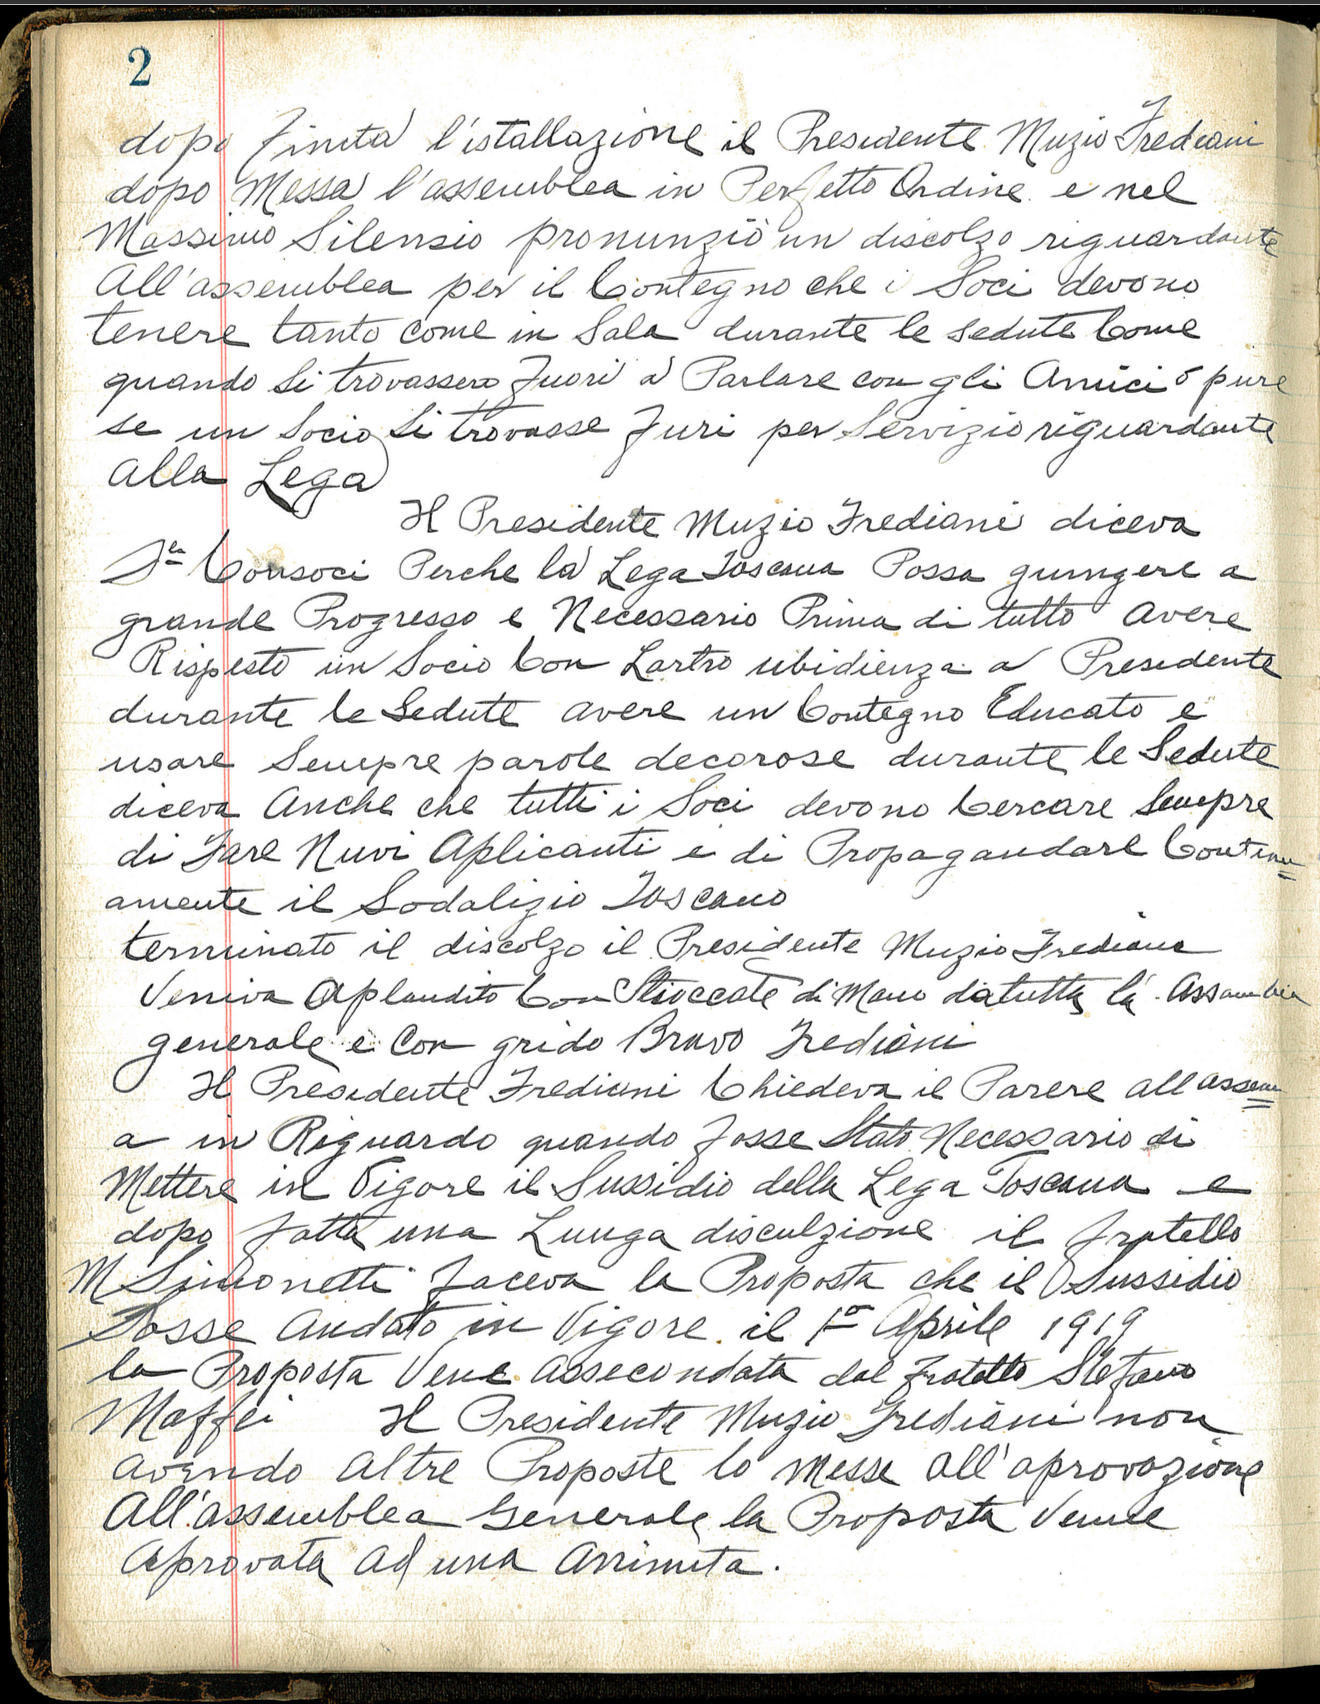 2
dopo finita l'istallazione il Presidente Muzio Frediani
dopo Messa l'assemblea in Perfetto Ordine e nel
Massimo Silensio pronunziò un discolzo riguardante
All'assemblea per il Contegno che i Soci devono
tenere tanto come in Sala durante le sedute Come
quando Si trovassero fuori a Parlare con gli Amici o pure
se un Socio Si trovasse furi per Servizio riguardante
alla Lega
Il Presidente Muzio Frediani diceva
Consoci Perche la Lega Toscana Possa giungere a
grande Progresso e Necessario Prima di tutto avere
Rispesto un Socio Con Lartro ubidienza a Presidente
durante le Sedute avere un Contegno Educato e
usare Sempre parole decorose durante le Sedute
diceva Anche che tutti i Soci devono Cercare Sempre
di Fare Nuvi Aplicanti e di Propagandare Continu=
amente il Sodalizio Toscano
terminato il discolzo il Presidente Muzio Frediani
Veniva Aplaudito Con di Mano da tutta la Assemblea
generale e Con grido Bravo Frediani
Il Presidente Frediani Chiedeva il Parere all assem=
a in Riguardo quando fosse Stato Necessario di
Mettere in Vigore il Sussidio della Lega Toscana e
dopo fatta una Lunga disculzione il fratello
M Simonetti faceva la Proposta che il Sussidio
Fosse Andato in Vigore il 1º Aprile 1919
la Proposta Vene assecondata dal fratello Stefano
Maffei Il Presidente Muzio Frediani non
avendo altre Proposte lo Messe all'aprovazione
All'assemblea Generale la Proposta Venne
Aprovata ad una Animita.